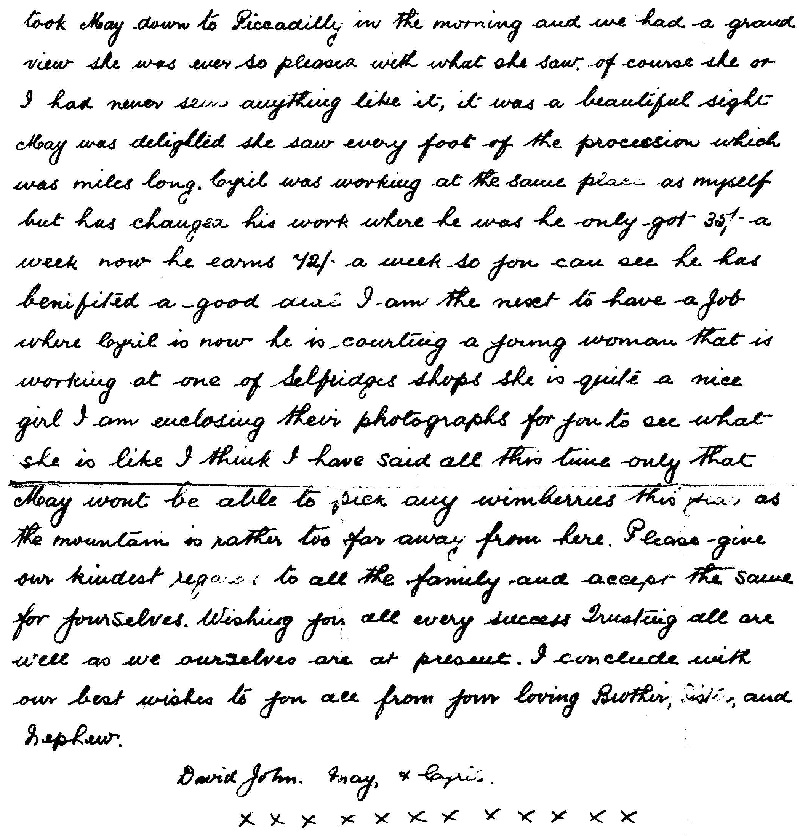 took May down to Piccadilly in the morning and we had a grand
view she was ever so pleased with what she saw. of course she or
I had never seen anything like it, it was a beautiful sight
May was delighted she saw every foot of the procession which
was miles long. Cyril was working at the same place as myself
but has changed his work where he was he only got 35/- a
week now he earns 72/- a week so you can see he has
benifited a good deal I am the next to have a Job
where Cyril is now he is courting a young woman that is
working at one of Selfridges shops she is quite a nice
girl I am enclosing their photographs for you to see what
she is like I think I have said all this time only that
May wont be able to pick any wimberries this year as
the mountain is rather too far away from here. Please give
our kindest regards to all the family and accept the same
for yourselves. Wishing you all every success Trusting all are
well as we ourselves are at present. I conclude with
our best wishes to you all from your loving Brother, Sister, and
Nephew.
David John. May, & Cyril.
x x x x x x x x x x x x